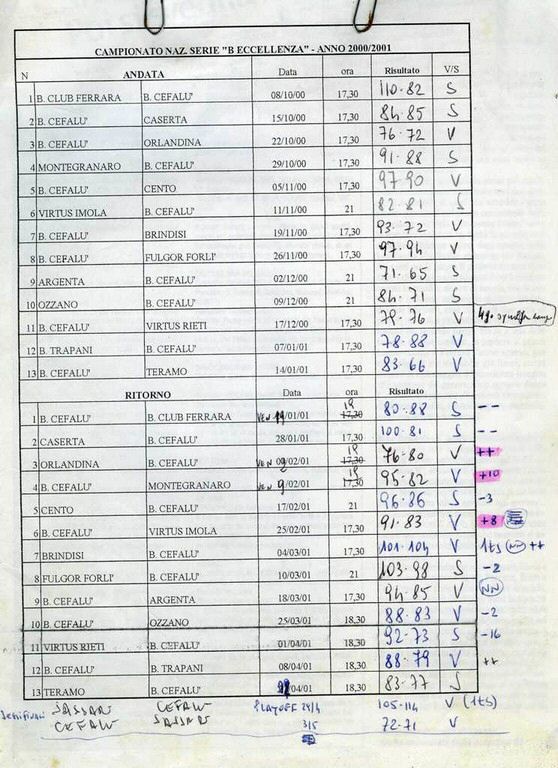 CAMPIONATO NAZ. SERIE "B ECCELLENZA" - ANNO 2000/2001
N ANDATA Data ora Risultato V/S
1 B. CLUB FERRARA B. CEFALU' 08/10/00 17,30 110-82 S
2 B. CEFALU' CASERTA 15/10/00 17,30 84-85 S
3 B. CEFALU' ORLANDINA 22/10/00 17,30 76-72 V
4 MONTEGRANARO B. CEFALU' 29/10/00 17,30 91-88 S
5 B. CEFALU' CENTO 05/11/00 17,30 97-90 V
6 VIRTUS IMOLA B. CEFALU' 11/11/00 21 82-81 S
7 B. CEFALU' BRINDISI 19/11/00 17,30 93-72 V
8 B. CEFALU' FULGOR FORLI' 26/11/00 17,30 97-94 V
9 ARGENTA B. CEFALU' 02/12/00 21 71-65 S
10 OZZANO B. CEFALU' 09/12/00 21 84-71 S
11 B. CEFALU' VIRTUS RIETI 17/12/00 17,30 79-76 V
12 B. TRAPANI B. CEFALU' 07/01/01 17,30 78-88 V
13 B. CEFALU' TERAMO 14/01/01 17,30 83-66 V
RITORNO Data ora Risultato
1 B. CEFALU' B. CLUB FERRARA VEN 19/01/01 19 17,30 80-88 S --
2 CASERTA B. CEFALU' 28/01/01 17,30 100-81 S --
3 ORLANDINA B. CEFALU' VEN /02/01 19 17,30 76-80 V ++
4 B. CEFALU' MONTEGRANARO VEN 9/02/01 19 17,30 95-82 V +10
5 CENTO B. CEFALU' 17/02/01 21 96-86 S -3
6 B. CEFALU' VIRTUS IMOLA 25/02/01 17,30 91-83 V +8
7 BRINDISI B. CEFALU' 04/03/01 17,30 101-104 V 1ts NN ++
8 FULGOR FORLI' B. CEFALU' 10/03/01 21 103-98 S -2
9 B. CEFALU' ARGENTA 18/03/01 17,30 94-85 V NN
10 B. CEFALU' OZZANO 25/03/01 18,30 88-83 V -2
11 VIRTUS RIETI B. CEFALU' 01/04/01 18,30 92-73 S -16
12 B. CEFALU' B. TRAPANI 08/04/01 18,30 88-79 V ++
13 TERAMO B. CEFALU' /04/01 18,30 83-77 S
SEMIFINALI SASSARI CEFALU' PLAYOFF 29/4 105-114 V (1ts)
CEFALU' SASSARI 3/5 72-71 V